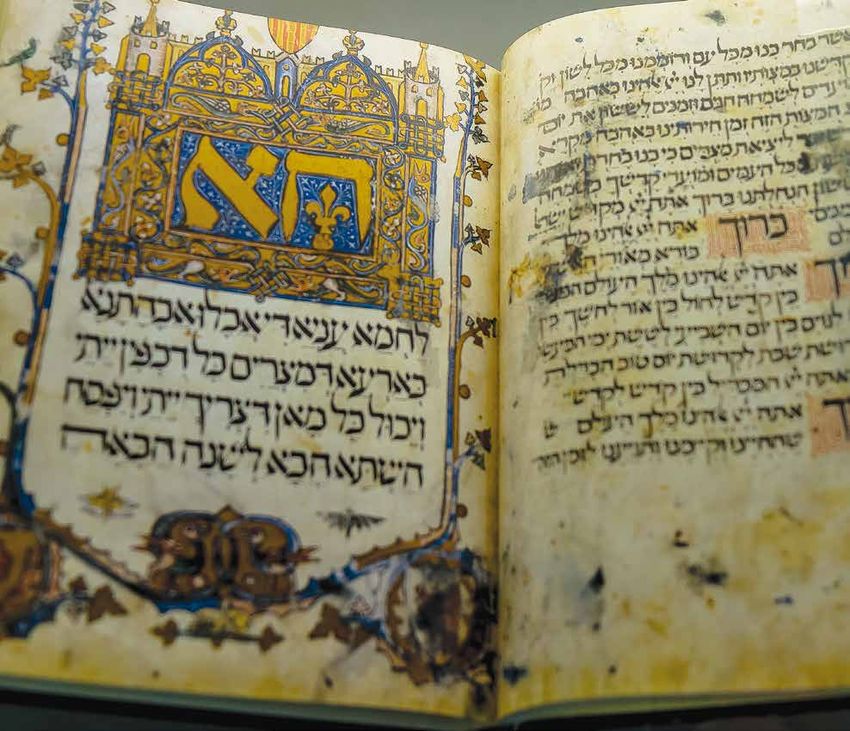 אשר בחר בנו מכל עם ורוממנו מכל לשון וק
קדשנו במצותיו ותתן לנו יי אלהינו באהבה מו
לשמחה חגים וזמנים לששון את יום
המצות הזה זמן חירותינו באהבה מקרא
ליציאת מצרים כי בנו בחרת
כל העמים ומועדי קדשך בשמחה
ששון הנחלתנו ברוך אתה יי מקדש ישר
ברוך אתה יי אלהינו מלך
בורא מאורי
אתה יי אלהינו מלך העולם המב
בין קדש לחול בין אור לחשך בין
לגוים בין יום השביעי לששת ימי המעש
קדושת שבת לקדושת יום טוב הבדלת
אתה יי המבדיל בין קדש לקדש
אתה יי אלהינו מלך העולם ש
שהחיינו וקיימנו והגיענו לזמן הזה
הא
לחמא עניא די אכלו אבהתנא
בארעא דמצרים כל דכפין ייתי
ויכול כל מאן דצריך ייתי ויפסח
השתא הכא לשנה הבאה